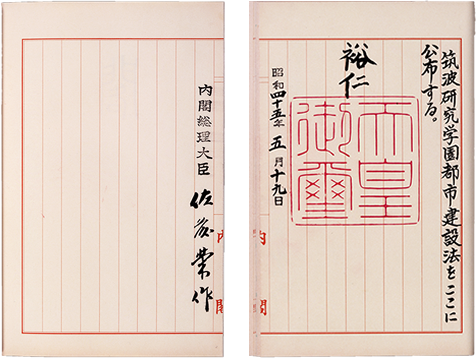 筑波研究学園都市建設法をここに
公布する。
裕仁
天皇
御璽
昭和四十五年五月十九日
内閣
内閣総理大臣
佐藤榮作
内閣